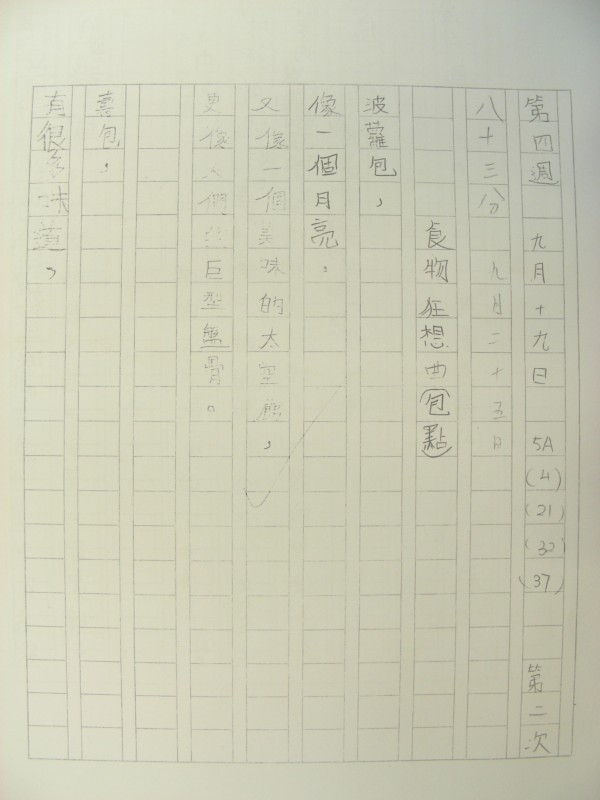 第四週 九月十九日 5A (4) (21) (32) (37) 第二次
八十三分 九月二十五日
食物狂想曲(包點)
波蘿包，
像一個月亮。
又像一個美味的太空船，
更像人們的巨型無骨。
壽包，
有很多味道，